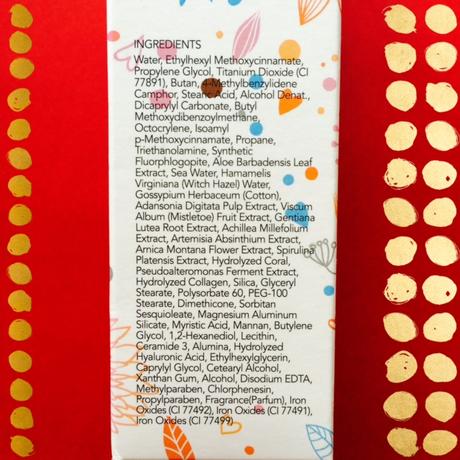 INGREDIENTS
Water, Ethylhexyl Methoxycinnamate,
Propylene Glycol, Titanium Dioxide (CI
77891), Butan, 4-Methylbenzylidene
Camphor, Stearic Acid, Alcohol Denat.,
Dicaprylyl Carbonate, Butyl
Methoxydibenzoylmethane,
Octocrylene, Isoamyl
p-Methoxycinnamate, Propane,
Triethanolamine, Synthetic
Fluorphlogopite, Aloe Barbadensis Leaf
Extract, Sea Water, Hamamelis
Virginiana (Witch Hazel) Water,
Gossypium Herbaceum (Cotton),
Adansonia Digitata Pulp Extract, Viscum
Album (Mistletoe) Fruit Extract, Gentiana
Lutea Root Extract, Achillea Millefolium
Extract, Artemisia Absinthium Extract,
Arnica Montana Flower Extract, Spirulina
Platensis Extract, Hydrolyzed Coral,
Pseudoalteromonas Ferment Extract,
Hydrolyzed Collagen, Silica, Glyceryl
Stearate, Polysorbate 60, PEG-100
Stearate, Dimethicone, Sorbitan
Sesquioleate, Magnesium Aluminum
Silicate, Myristic Acid, Mannan, Butylene
Glycol, 1,2-Hexanediol, Lecithin,
Ceramide 3, Alumina, Hydrolyzed
Hyaluronic Acid, Ethylhexylglycerin,
Caprylyl Glycol, Cetearyl Alcohol,
Xanthan Gum, Alcohol, Disodium EDTA,
Methylparaben, Chlorphenesin,
Propylparaben, Fragrance(Parfum), Iron
Oxides (CI 77492), Iron Oxides (CI 77491),
Iron Oxides (CI 77499)